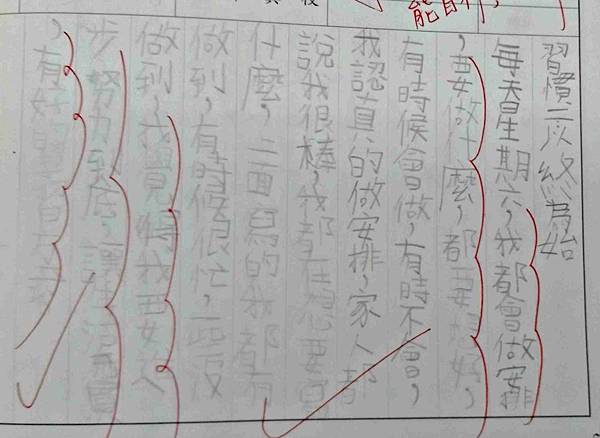 習慣二以終為始
每天星期六，我都會做安排
，要做什麼，都要想好，
有時候會做，有時不會，
我認真的做安排，家人都
說我很棒，我都在想要寫
什麼，上面寫的我都有
做到，有時候很忙，一些沒
做到，我覺得我要
步努力到底，讓生活
，有
能自